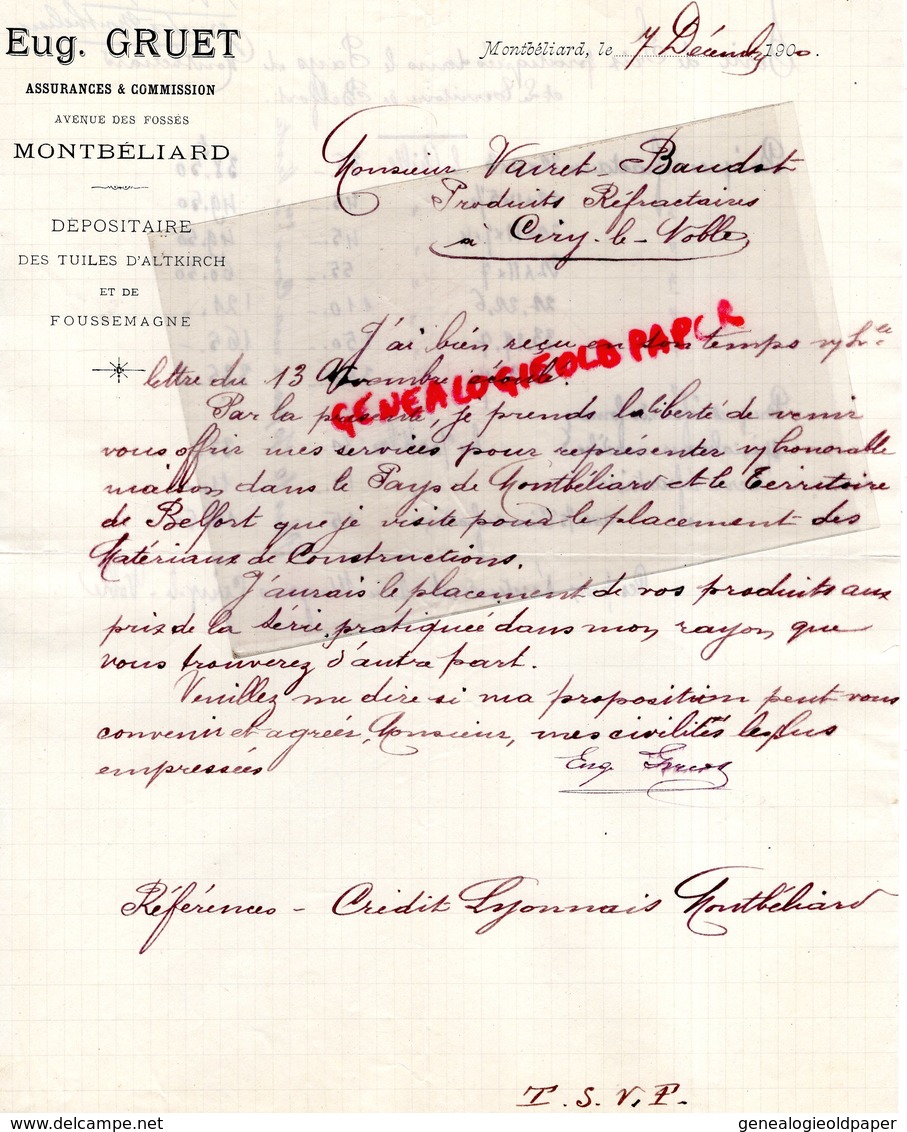 Eug. GRUET
ASSURANCES & COMMISSION
AVENUE DES FOSSÉS
MONTBÉLIARD
DÉPOSITAIRE
DES TUILES D'ALTKIRCH
ET DE
FOUSSEMAGNE
Montbéliard, le 7 Décembre 1900.
Monsieur Vairet-Baudot
Produits Réfractaires
à Ciry-le-Noble
J'ai bien reçu en son temps
lettre du 13 Novembre écoulé.
Par la présente, je prends la liberté de venir
vous offrir mes services pour représenter honorable
maison dans le Pays de Montbéliard et le Territoire
de Belfort que je visite pour le placement des
Matériaux de Constructions.
J'aurais le placement de vos produits aux
prix de la série pratiquée dans mon rayon que
vous trouverez d'autre part.
Veuillez me dire si ma proposition peut vous
convenir et agréer, Monsieur, mes civilités les plus
empressées
Eug. Gruet
Références - Crédit Lyonnais Montbéliard
T. S. V. P.
GENEALOGIEOLDPAPER
www.delcampe.net
genealogieoldpaper